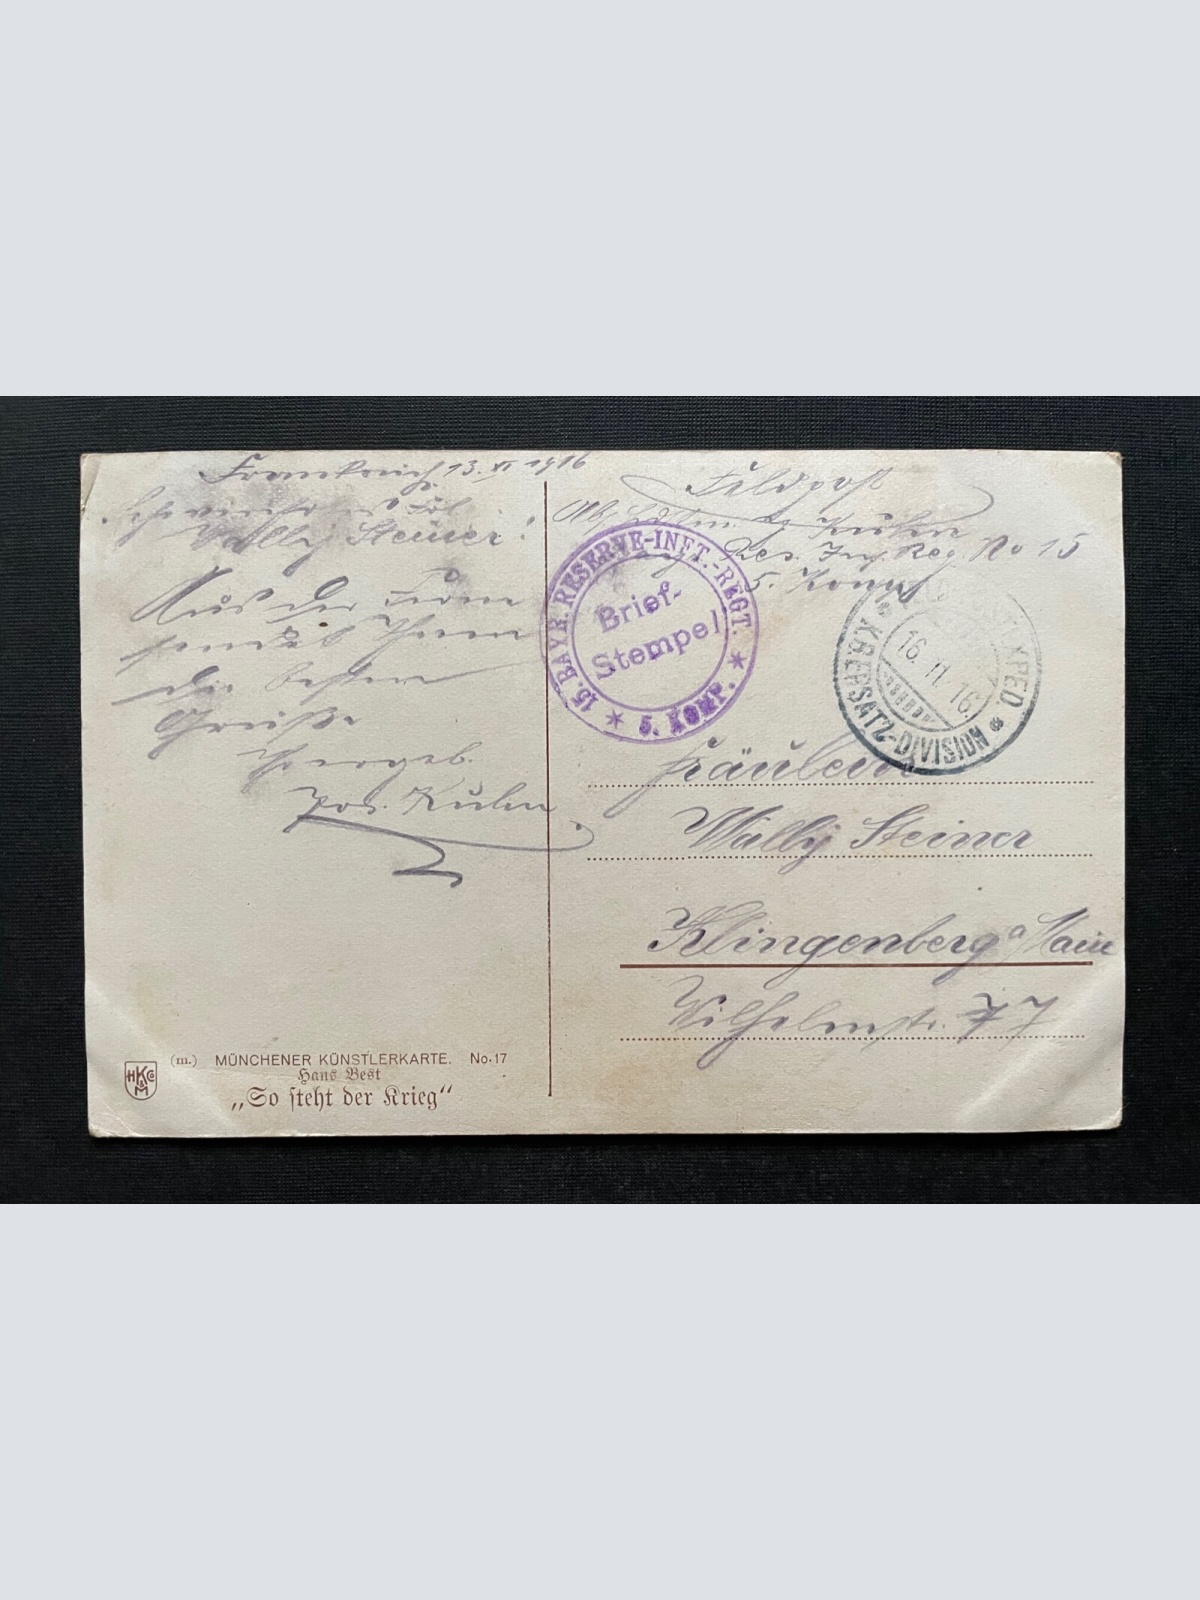 Frankreich 13. XI 1916
Frl.
Wally Steiner!
Aus der Ferne
sendet Ihnen
die besten
Grüße
Ihr ergeb.
Jos. Kuhn
Feldpost
Kuhn
Res. Inf. Reg. No 15
5. Komp
15. BAYR. RESERVE-INFT.-REGT.
Brief-
Stempel
5. KOMP.
16. 11. 16.
K.B. ERSATZ-DIVISION
Fräulein
Wally Steiner
Klingenberg a/Main
Wilhelmstr. 77
HKCo
&
M
(m.) MÜNCHENER KÜNSTLERKARTE. No. 17
Hans Best
„So steht der Krieg“